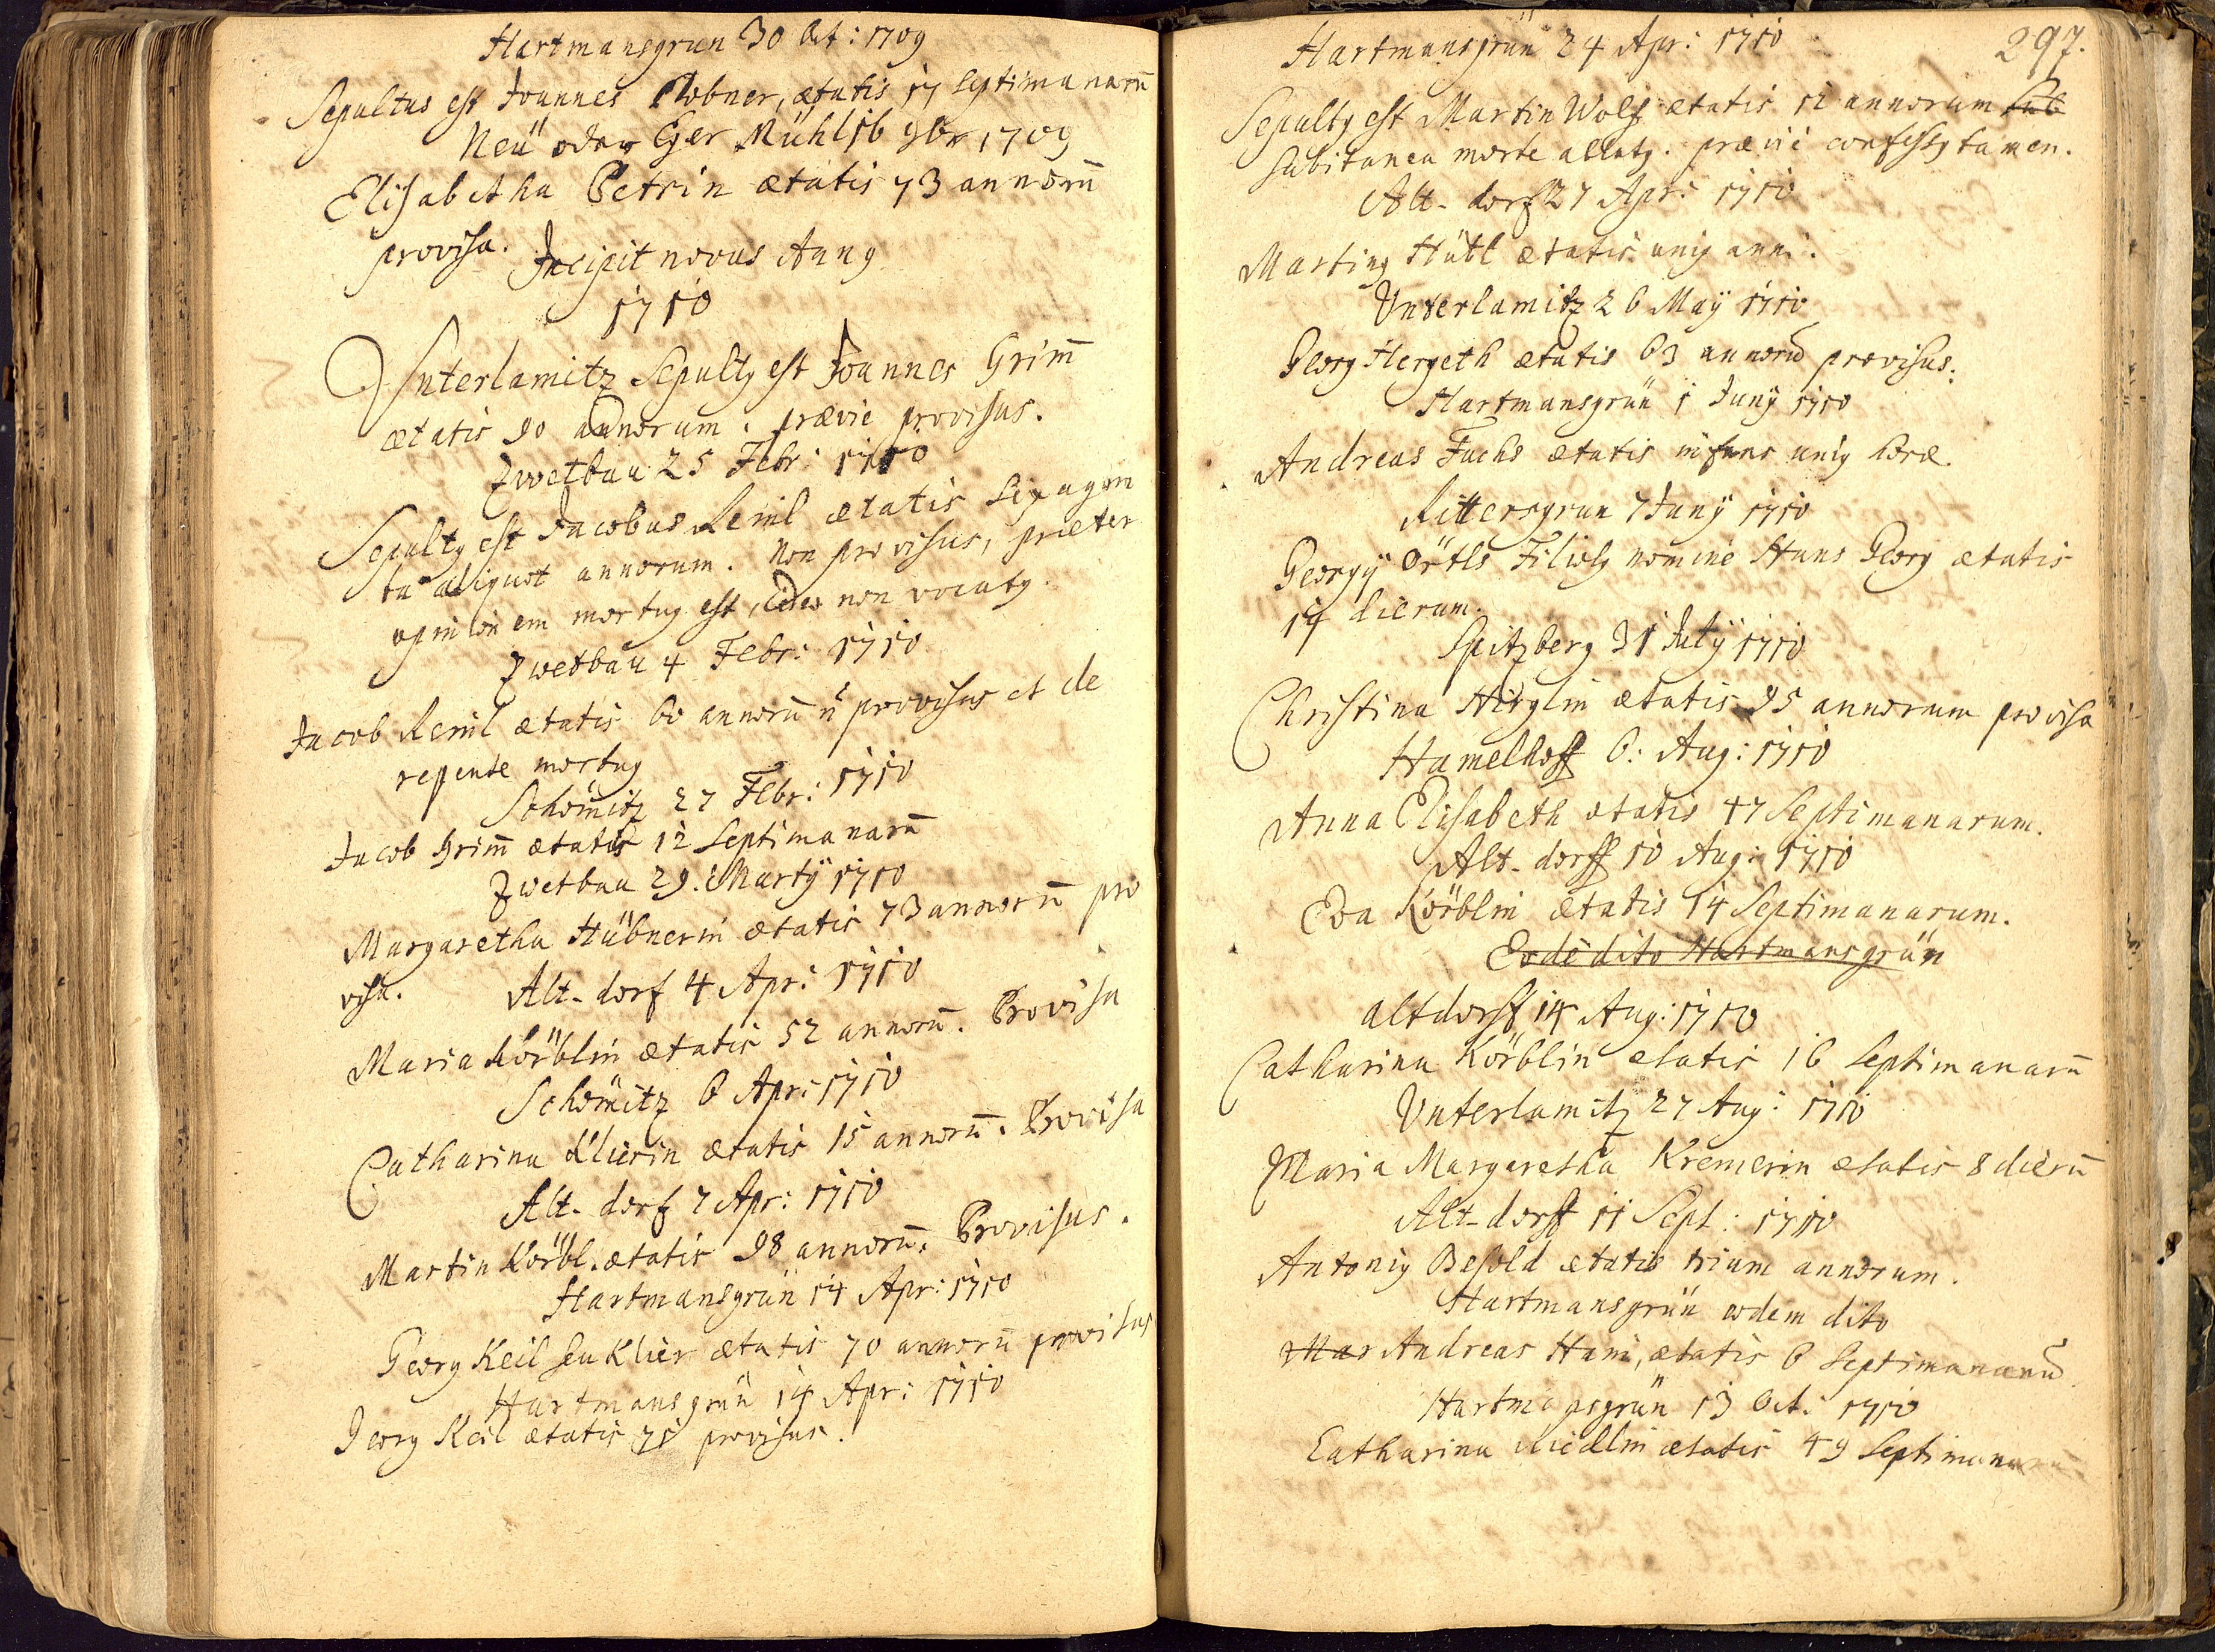 Hartmansgrun 30 Oct: 1709
Sepultus est Joannes Plobner, ætatis 17 septimanarū
Neü oder Eger Mühl 16 9br 1709
Elisabetha Petrin ætatis 73 annorū
provisa. Incipit novus Annꝰ
1710
Vnterlamitz Sepultꝰ est Joannes Grim̄
ætatis 90 annorum. prævie provisus.
Zwetbau 25 Febr: 1710
Sepultꝰ est Jacobus Reinl ætatis sexagin
ta aliquot annorum. Non provisus, præter
opinionem mortuꝰ est, ideo non vocatꝰ.
Zwetbau 4 Febr: 1710
Jacob Reinl ætatis 60 annorū n̄ provisus et de
repente mortuꝰ
Schöm̄itz 27 Febr: 1710
Jacob Grim̄ ætatis 12 Septimanarū
Zwetbau 29. Martÿ 1710
Margaretha Hübnerin ætatis 73 annorū pro
visa. Alt-dorf 4 Apr: 1710
Maria Körblin ætatis 52 annorū. Provisa
Schömitz 6 Apr: 1710
Catharina Klierin ætatis 15 annorū. Provisa
Alt-dorf 7 Apr: 1710
Martin Körbl. ætatis 98 annorū. Provisus.
Hartmansgrün 14 Apr: 1710
Georg Keil seu Klier ætatis 70 annorū provisus
Hartmansgrün 14 Apr: 1710
Georg Keil ætatis 71 provisus.
297.
Hartmansgrün 24 Apr: 1710
Sepultꝰ est Martin Wolf ætatis 12 annorum sub
subitanea morte allatꝰ. prævie confessꝰ tamen.
Alt-dorf 27 Apr: 1710
Martinꝰ Hübl ætatis uniꝰ anni.
Vnterlamitz 26 Maÿ 1710
Georg Hergeth ætatis 63 annorū provisus.
Hartmansgrün 1 Junÿ 1710
Andreas Fuchs ætatis infans uniꝰ horæ.
Rittersgrun 7 Junÿ 1710
Georgÿ Örtls Filiolꝰ nomine Hans Georg ætatis
14 dierum.
Spitzberg 31 Julÿ 1710
Christina Hirglin ætatis 95 annorum provisa
Hamelhoff 6: Aug: 1710
Anna Elisabeth ætatis 47 Septimanarum.
Alt-dorff 10 Aug: 1710
Eva Körblin ætatis 14 Septimanarum.
Eodē dito Hartmansgrün
altdorff 14 Aug: 1710
Catharina Körblin ætatis 16 Septimanarū
Vnterlamitz 27 Aug: 1710
Maria Margaretha Kremerin ætatis 8 dierū
Alt-dorff 11 Sept: 1710
Antoniꝰ Besold ætatis trium annorum.
Hartmansgrün eodem dito
Mar Andreas Ham̄, ætatis 6 Septimanarū
Hartmansgrün 13 Oct: 1710
Catharina Riedlin ætatis 49 Septimanarū